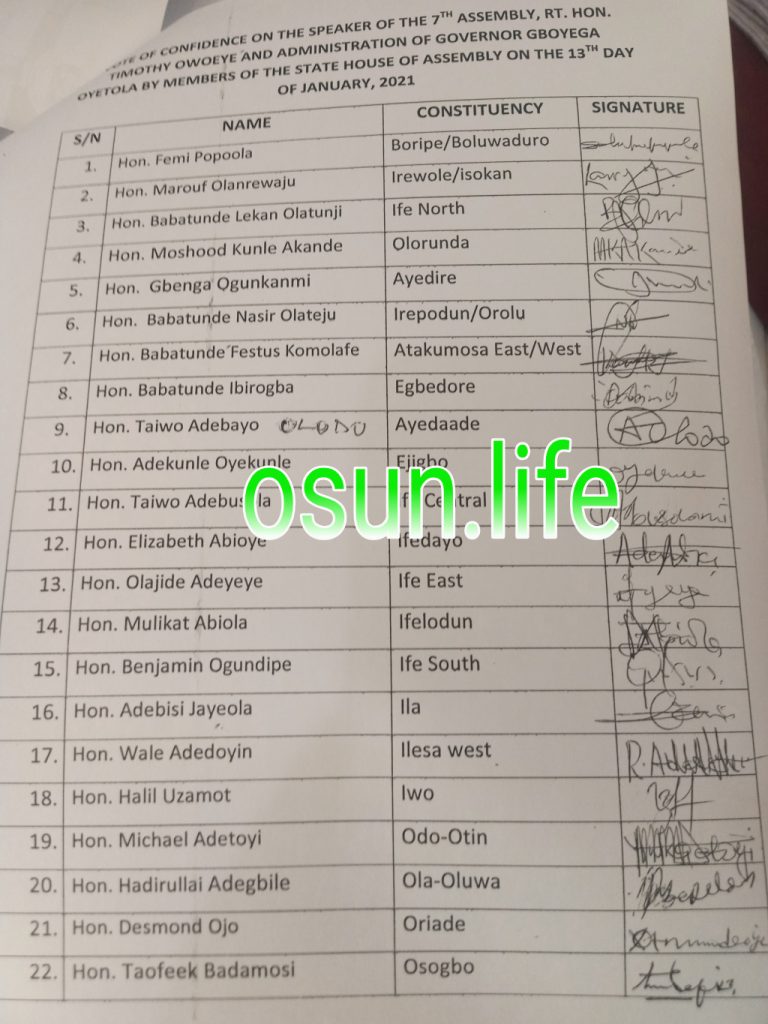 VOTE OF CONFIDENCE ON THE SPEAKER OF THE 7TH ASSEMBLY, RT. HON.
TIMOTHY OWOEYE AND ADMINISTRATION OF GOVERNOR GBOYEGA
OYETOLA BY MEMBERS OF THE STATE HOUSE OF ASSEMBLY ON THE 13TH DAY
OF JANUARY, 2021
S/N NAME CONSTITUENCY SIGNATURE
1. Hon. Femi Popoola Boripe/Boluwaduro
2. Hon. Marouf Olanrewaju Irewole/isokan
3. Hon. Babatunde Lekan Olatunji Ife North
4. Hon. Moshood Kunle Akande Olorunda
5. Hon. Gbenga Ogunkanmi Ayedire
6. Hon. Babatunde Nasir Olateju Irepodun/Orolu
7. Hon. Babatunde Festus Komolafe Atakumosa East/West
8. Hon. Babatunde Ibirogba Egbedore
9. Hon. Taiwo Adebayo OLODO Ayedaade
10. Hon. Adekunle Oyekunle Ejigbo
osun.life
11. Hon. Taiwo Ife Central
12. Hon. Elizabeth Abioye Ifedayo
13. Hon. Olajide Adeyeye Ife East
14. Hon. Mulikat Abiola Ifelodun
15. Hon. Benjamin Ogundipe Ife South
16. Hon. Adebisi Jayeola Ila
17. Hon. Wale Adedoyin Ilesa west
18. Hon. Halil Uzamot Iwo
19. Hon. Michael Adetoyi Odo-Otin
20. Hon. Hadirullai Adegbile Ola-Oluwa
21. Hon. Desmond Ojo Oriade
22. Hon. Taofeek Badamosi Osogbo